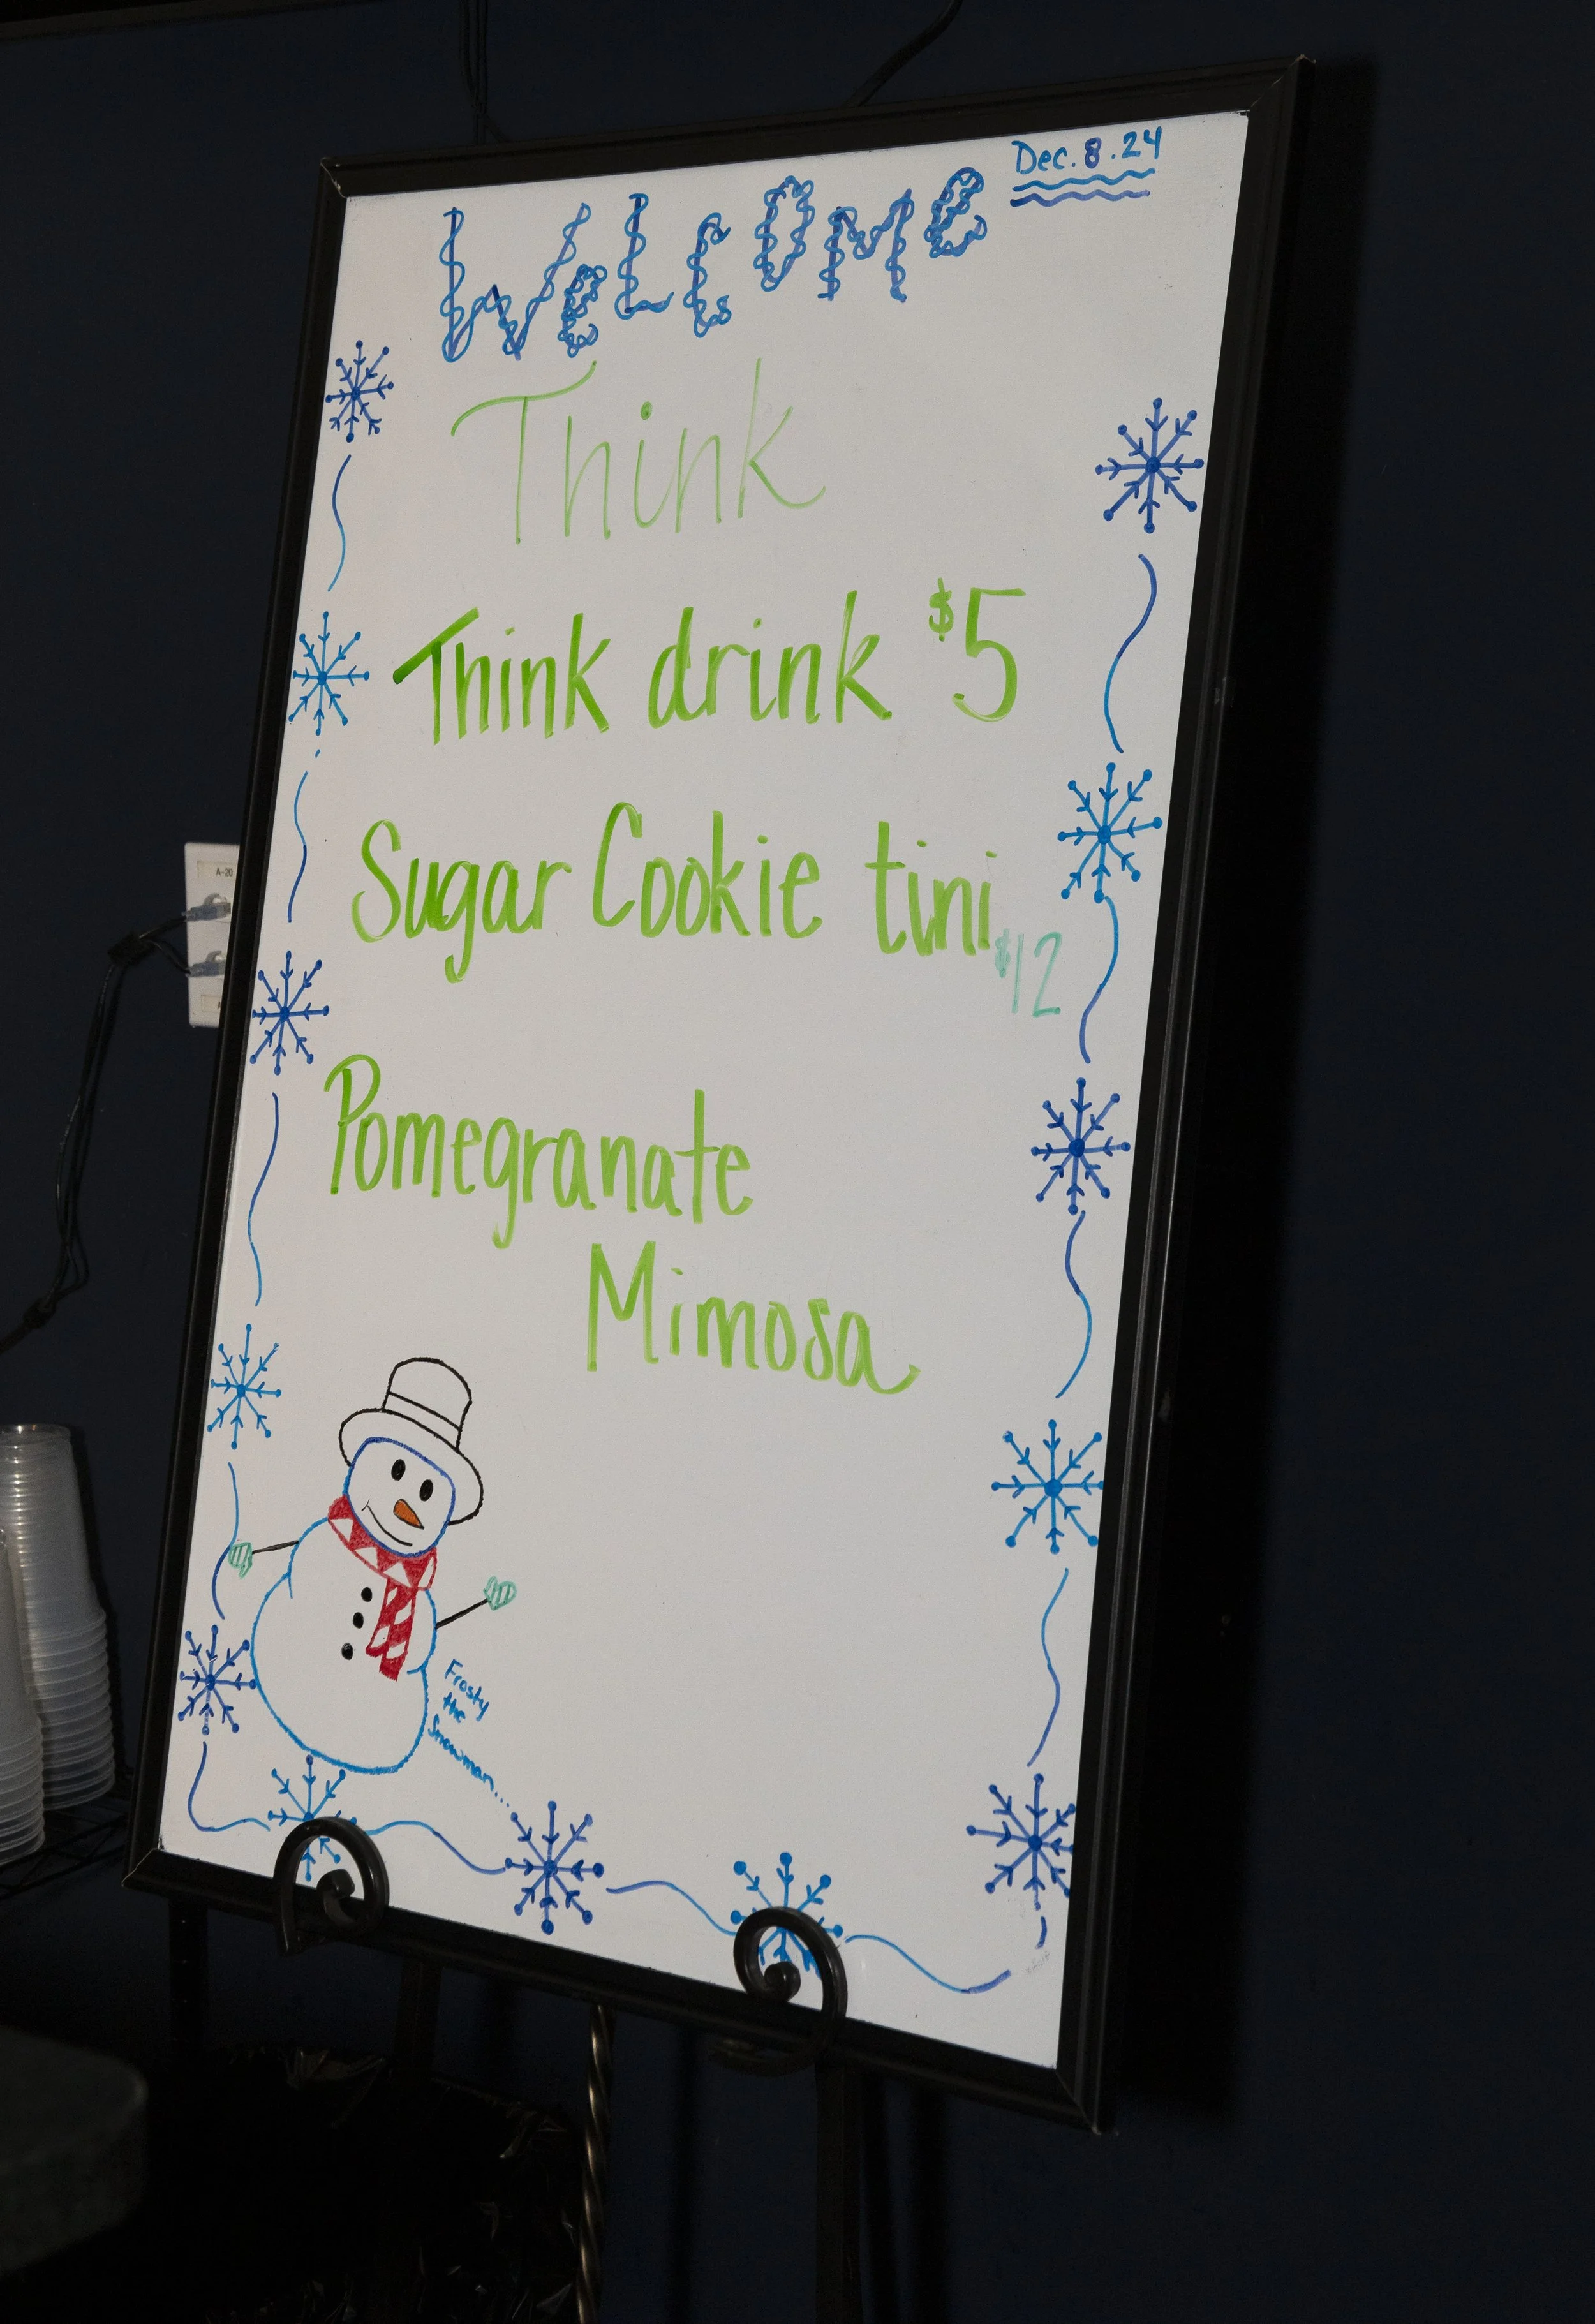 Dec.8.24
WeLcOMe
Think
Think drink $5
Sugar Cookie tini
$12
Pomegranate
Mimosa
Frosty
the
Snowman....
A-20